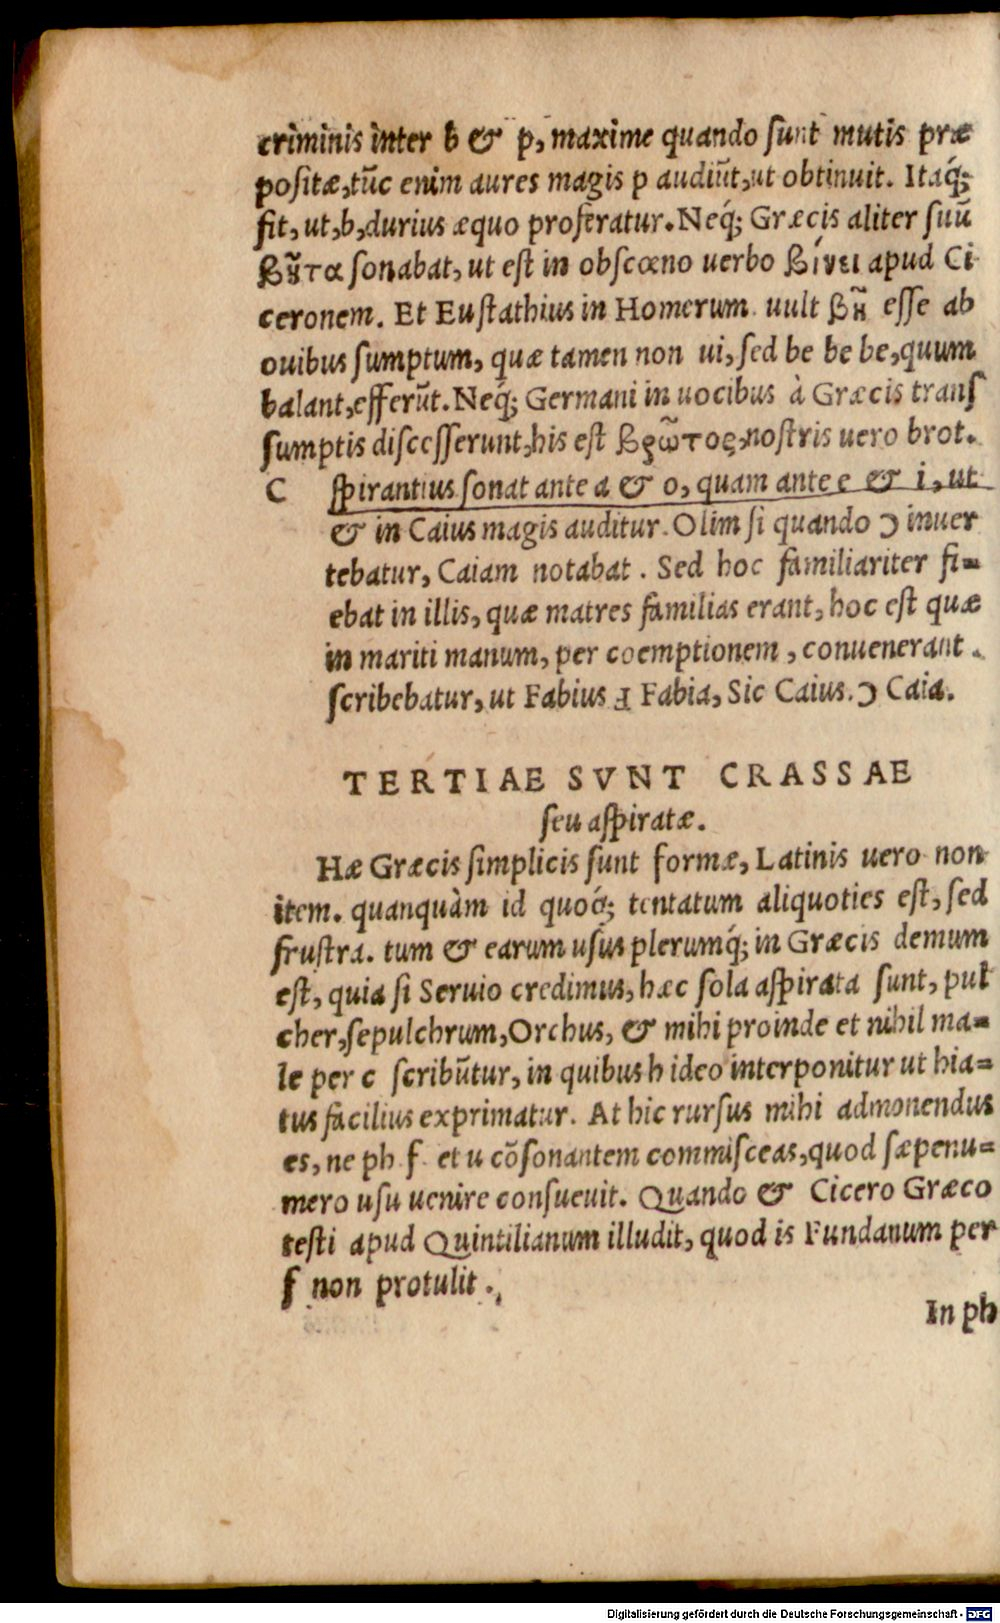 criminis inter b & p, maxime quando sunt mutis præ
positæ, tūc enim aures magis p audiūt, ut obtinuit. Itaq́;
fit, ut, b, durius æquo proferatur. Neq́; Græcis aliter suū
βῆτα sonabat, ut est in obscœno uerbo βίνει apud Ci
ceronem. Et Eustathius in Homerum uult βῆ esse ab
ouibus sumptum, quæ tamen non ui, sed be be be, quum
balant, efferūt. Neq́; Germani in uocibus à Græcis trans
sumptis discesserunt, his est βρῶτος, nostris uero brot.
C spirantius sonat ante a & o, quam ante e & i, ut
& in Caius magis auditur. Olim si quando ↄ inuer
tebatur, Caiam notabat. Sed hoc familiariter fi=
ebat in illis, quæ matres familias erant, hoc est quæ
in mariti manum, per coemptionem, conuenerant.
scribebatur, ut Fabius ⅎ Fabia, Sic Caius. ↄ Caia.
TERTIAE SVNT CRASSAE
seu aspiratæ.
Hæ Græcis simplicis sunt formæ, Latinis uero non
item. quanquàm id quoq́; tentatum aliquoties est, sed
frustra. tum & earum usus plerumq́; in Græcis demum
est, quia si Seruio credimus, hæc sola aspirata sunt, pul
cher, sepulchrum, Orchus, & mihi proinde et nihil ma=
le per c scribūtur, in quibus h ideo interponitur ut hia=
tus facilius exprimatur. At hic rursus mihi admonendus
es, ne ph f et u cōsonantem commisceas, quod sæpenu=
mero usu uenire consueuit. Quando & Cicero Græco
testi apud Quintilianum illudit, quod is Fundanum per
f non protulit.
In ph
Digitalisierung gefördert durch die Deutsche Forschungsgemeinschaft - DFG